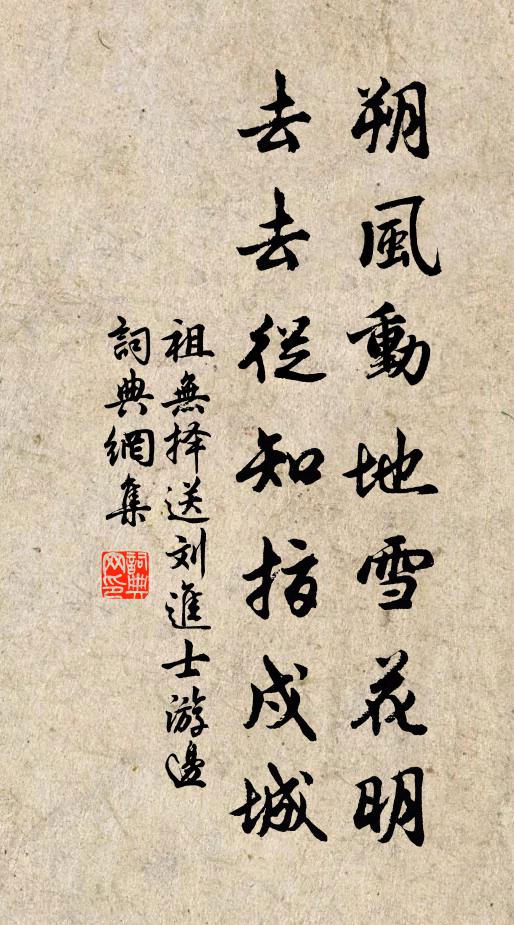 朔風動地雪花明
去去從知指戍城
祖無择送刘進士游邊
詞典網集
詞典網印